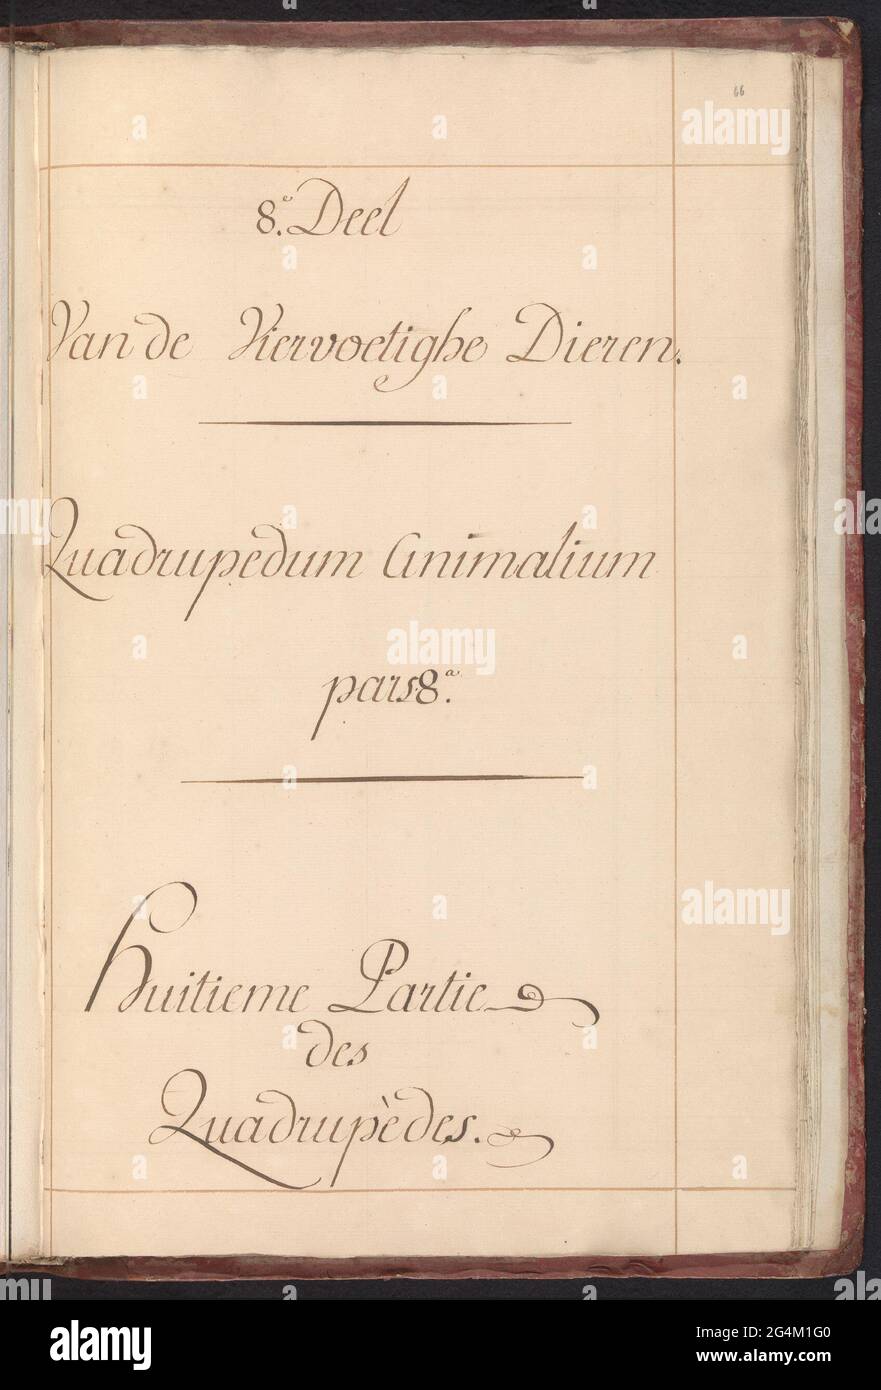 66
8.e Deel
Van de Viervoetighe Dieren.
Quadrupedum Animalium
pars 8.a
Huitieme Partie
des
Quadrupèdes.
alamy
Image ID: 2G4M1G0
www.alamy.com